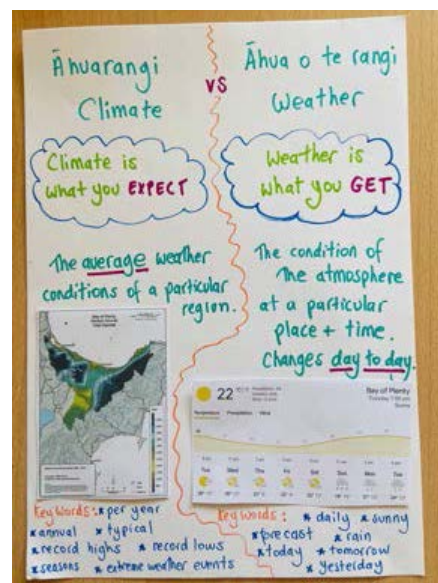 Āhuarangi
Climate
vs
Āhua o te rangi
Weather
Climate is
what you EXPECT
Weather is
what you GET
The average weather
conditions of a particular
region.
The condition of
the atmosphere
at a particular
place + time.
Changes day to day.
Bay of Plenty
22
Bay of Plenty
Sunny
Temperature Precipitation Wind
Tue Wed Thu Fri Sat Sun Mon Tue
Key Words: * per year
* annual * typical
* record highs * record lows
* seasons * extreme weather events
Key Words: * daily * sunny
* forecast * rain
* today * tomorrow
* yesterday